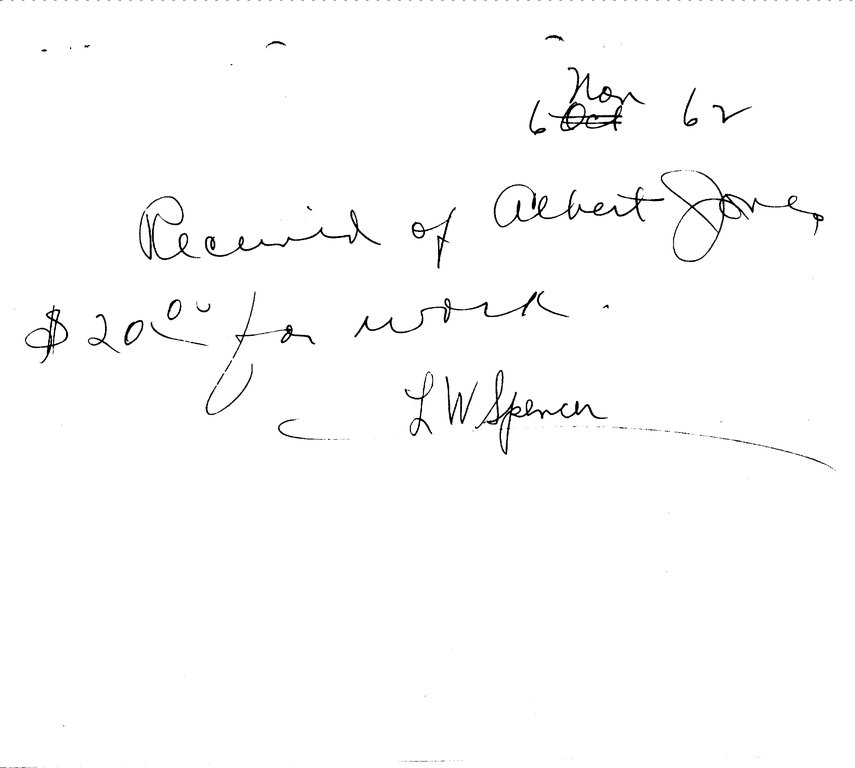 6 ~~Oct~~ Nov 62
Received of Albert Jones
$20.00 for work.
L W Spencer